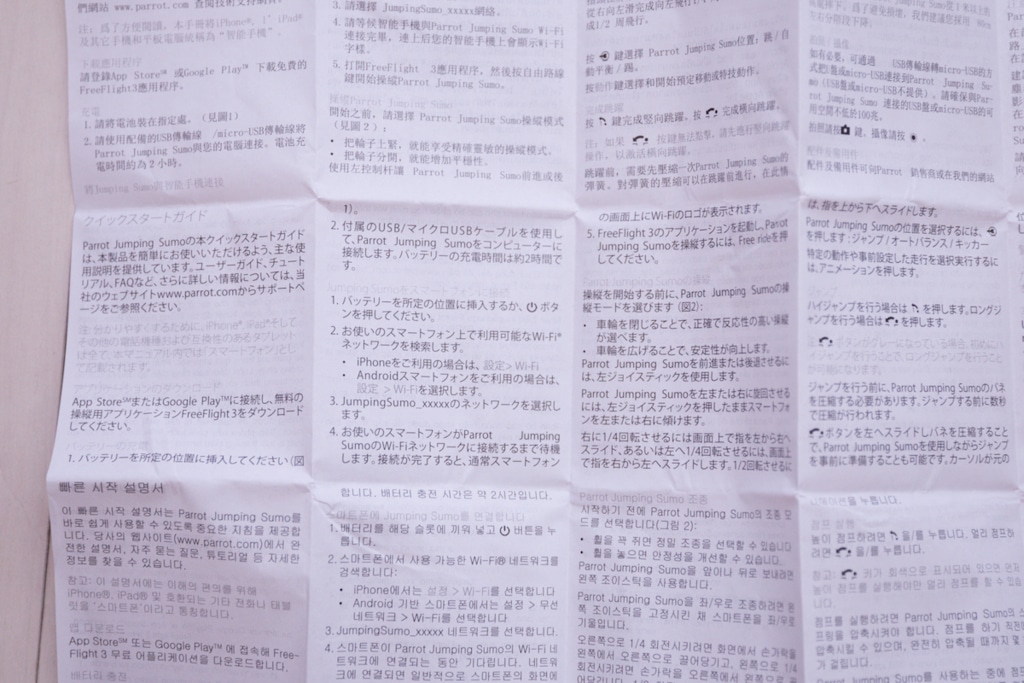 們網站 www.parrot.com
注：為了方便閱讀，本手冊將iPhone®，iPad®
及其它手機和平板電腦統稱為"智能手機"。
下載應用程序
請登錄App Store℠ 或Google Play™ 下載免費的
FreeFlight3應用程序。
充電
1. 請將電池裝在指定處。（見圖1）
2. 請使用配備的USB傳輸線 /micro-USB傳輸線將
Parrot Jumping Sumo與您的電腦連接。電池充
電時間約為2小時。
將Jumping Sumo與智能手機連接
3. 請選擇 JumpingSumo_xxxxx網絡。
4. 請等候智能手機與Parrot Jumping Sumo Wi-Fi
連接完畢，連上后您的智能手機上會顯示Wi-Fi
字樣。
5. 打開FreeFlight 3應用程序，然後按自由路線
鍵開始操縱Parrot Jumping Sumo。
操縱Parrot Jumping Sumo
開始之前，請選擇 Parrot Jumping Sumo操縱模式
（見圖 2）：
• 把輪子上緊，就能享受精確靈敏的操縱模式。
• 把輪子分開，就能增加平穩性。
使用左控制杆讓 Parrot Jumping Sumo前進或後
從右向左滑完成向左
或1/2 周飛行。
按 鍵選擇 Parrot Jumping Sumo位置：跳 / 自
動平衡 / 踢。
按動作鍵選擇和開始預定移動或特技動作。
完成跳躍
按 鍵完成竪向跳躍，按 完成橫向跳躍。
注：如果 按鍵無法點擊，請先進行竪向跳躍
操作，以激活橫向跳躍。
跳躍前，需要先壓縮一次Parrot Jumping Sumo的
彈簧。對彈簧的壓縮可以在跳躍前進行，在此情
電壓摔下。為了避免損壞，我們建議您採用
左右分階段下降。
拍照/攝像
如有必要，可通過 USB傳輸線轉micro-USB的方
式把U盤或micro-USB連接到Parrot Jumping Su-
mo（USB盤或micro-USB不提供）。請確保與Par-
rot Jumping Sumo 連接的USB盤或micro-USB的可
用空間不低於100兆。
拍照請按 鍵，攝像請按 。
配件及備用件
配件及備用件可向Parrot 銷售商或在我們的網站
クイックスタートガイド
Parrot Jumping Sumoの本クイックスタートガイド
は、本製品を簡単にお使いいただけるよう、主な使
用説明を提供しています。ユーザーガイド、チュート
リアル、FAQなど、さらに詳しい情報については、当
社のウェブサイトwww.parrot.comからサポートペ
ージをご参照ください。
注：分かりやすくするために、iPhone®、iPad®そして
その他の電話機種および互換性のあるタブレット
は全て、本マニュアル内では「スマートフォン」とし
て記載されます。
アプリケーションのダウンロード
App Store℠またはGoogle Play™に接続し、無料の
操縦用アプリケーションFreeFlight 3をダウンロード
してください。
バッテリーの充電
1. バッテリーを所定の位置に挿入してください（図
1）。
2. 付属のUSB/マイクロUSBケーブルを使用し
て、Parrot Jumping Sumoをコンピューターに
接続します。バッテリーの充電時間は約2時間で
す。
Jumping Sumoをスマートフォンに接続
1. バッテリーを所定の位置に挿入するか、 ボタ
ンを押してください。
2. お使いのスマートフォン上で利用可能なWi-Fi®
ネットワークを検索します。
• iPhoneをご利用の場合は、設定> Wi-Fi
• Androidスマートフォンをご利用の場合は、
設定 > Wi-Fiを選択します。
3. JumpingSumo_xxxxxのネットワークを選択し
ます。
4. お使いのスマートフォンがParrot Jumping
SumoのWi-Fiネットワークに接続するまで待機
します。接続が完了すると、通常スマートフォン
の画面上にWi-Fiのロゴが表示されます。
5. FreeFlight 3のアプリケーションを起動し、Parrot
Jumping Sumoを操縦するには、Free rideを押
してください。
Parrot Jumping Sumoの操縦
操縦を開始する前に、Parrot Jumping Sumoの操
縦モードを選びます（図2）：
• 車輪を閉じることで、正確で反応性の高い操縦
が選べます。
• 車輪を広げることで、安定性が向上します。
Parrot Jumping Sumoを前進または後退させるに
は、左ジョイスティックを使用します。
Parrot Jumping Sumoを左または右に旋回させる
には、左ジョイスティックを押したままスマートフォ
ンを左または右に傾けます。
右に1/4回転させるには画面上で指を左から右へ
スライド、あるいは左へ1/4回転させるには、画面上
で指を右から左へスライドします。1/2回転させるに
は、指を上から下へスライドします。
Parrot Jumping Sumoの位置を選択するには、
を押します：ジャンプ / オートバランス / キッカー
特定の動作や事前設定した走行を選択実行するに
は、アニメーションを押します。
ジャンプ
ハイジャンプを行う場合は を押します。ロングジ
ャンプを行う場合は を押します。
注： ボタンがグレーになっている場合、初めにハ
イジャンプを行うことで、ロングジャンプを行うこと
が可能になります。
ジャンプを行う前に、Parrot Jumping Sumoのバネ
を圧縮する必要があります。ジャンプする前に数秒
で圧縮が行われます。
ボタンを左へスライドしバネを圧縮すること
で、Parrot Jumping Sumoを使用しながらジャンプ
を事前に準備することも可能です。カーソルが元の
빠른 시작 설명서
이 빠른 시작 설명서는 Parrot Jumping Sumo를
바로 쉽게 사용할 수 있도록 중요한 지침을 제공합
니다. 당사의 웹사이트(www.parrot.com)에서 완
전한 설명서, 자주 묻는 질문, 튜토리얼 등 자세한
정보를 찾을 수 있습니다.
참고: 이 설명서에는 이해의 편의를 위해
iPhone®, iPad® 및 호환되는 기타 전화나 태블
릿을 '스마트폰'이라고 통칭합니다.
앱 다운로드
App Store℠ 또는 Google Play™ 에 접속해 Free-
Flight 3 무료 어플리케이션을 다운로드합니다.
배터리 충전
합니다. 배터리 충전 시간은 약 2시간입니다.
스마트폰에 Jumping Sumo를 연결합니다
1. 배터리를 해당 슬롯에 끼워 넣고 버튼을 누
릅니다.
2. 스마트폰에서 사용 가능한 Wi-Fi® 네트워크를
검색합니다:
• iPhone에서는 설정 > Wi-Fi를 선택합니다
• Android 기반 스마트폰에서는 설정 > 무선
네트워크 > Wi-Fi를 선택합니다
3. JumpingSumo_xxxxx 네트워크를 선택합니다.
4. 스마트폰이 Parrot Jumping Sumo의 Wi-Fi 네
트워크에 연결되는 동안 기다립니다. 네트워
크에 연결되면 일반적으로 스마트폰의 화면에
Parrot Jumping Sumo 조종
시작하기 전에 Parrot Jumping Sumo의 조종 모
드를 선택합니다(그림 2):
• 휠을 꽉 쥐면 정밀 조종을 선택할 수 있습니다
• 휠을 놓으면 안정성을 개선할 수 있습니다.
Parrot Jumping Sumo을 앞이나 뒤로 보내려면
왼쪽 조이스틱을 사용합니다.
Parrot Jumping Sumo을 좌/우로 조종하려면 왼
쪽 조이스틱을 고정시킨 채 스마트폰을 좌/우로
기울입니다.
오른쪽으로 1/4 회전시키려면 화면에서 손가락을
왼쪽에서 오른쪽으로 끌어당기고, 왼쪽으로 1/4
회전시키려면 손가락을 오른쪽에서 왼쪽으로 끌
을 누릅니다.
점프 실행
높이 점프하려면 을/를 누릅니다. 멀리 점프하
려면 을/를 누릅니다.
참고: 키가 회색으로 표시되어 있으면 먼저
높이 점프를 실행해야만 멀리 점프를 할 수 있습
니다.
점프를 실행하려면 Parrot Jumping Sumo의 스
프링을 압축시켜야 합니다. 점프를 하기 직전에
압축시킬 수 있으며, 완전히 압축될 때까지 몇 초
가 걸립니다.
Parrot Jumping Sumo를 사용하는 중에 점프